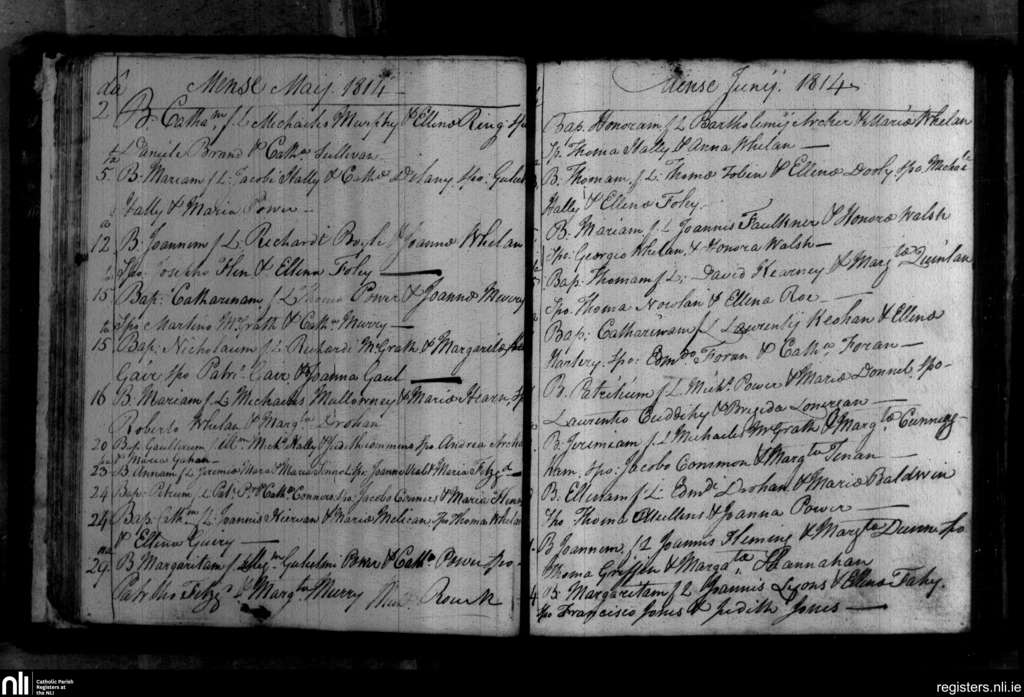 da Mense Maij. 1814
2 B. Catham. f. L. Michaelis Murphy & Ellenæ Ring Spo
Daniele Brand & Catha. Sullivan
5 B. Mariam f L. Jacobi Hally & Catha Delany Spo. Guliel
Hally & Maria Power
12 B. Joannem f L. Richardi Bogle & Joannæ Whelan
Spo. Josepho Hen & Ellena Foley
15 Bap. Catharinam f L Thomæ Power & Joannæ Murry
Spo Martino McGrath & Catha. Murry
15 Bap. Nicholaum f L. Richardi McGrath & Margaritæ
Gair Spo Patri. Gair & Joanna Gaul
16 B. Mariam f L Michaelis Mullowney & Mariæ Hearn, Sp
Roberto Whelan & Margta Drohan
20 Bap. Michl. Hally & Spo Andrea
& Maria Gahan
23 B. f L Jeremiæ & Mariæ Spo Joanne & Maria Fitzgd
24 Bap. Petrum f L Pat. & Catha Connors Spo Jacobo Connors & Maria
24 Bap. Cathm f L Joannis Kierwan & Mariæ Melican Spo Thoma Whelan
& Ellena Guery
29 B. Margaritam f Gulielmi Power & Catha Power Spo
Patritio Fitzgd & Margta Murry
Mense Junij. 1814
Bap. Honoram f L Bartholemij Archer & Mariæ Whelan
Spo Thoma Hally & Anna Whelan
B. Thomam f L. Thomæ Tobin & Ellenæ Dooly Spo Michæle
Hally & Ellena Foley
B. Mariam f L. Joannis Faulkner & Honoræ Walsh
Spo. Georgio Whelan & Honora Walsh
Bap. Thomam f L. David Kearney & Margta Quinlan
Spo Thoma Nowlan & Ellena Roe
Bap. Catharinam f L Laurentij Keohan & Ellenæ
Hartery. Spo. Edmdo Foran & Catha Foran
B. Patritium f L. Michl. Power & Mariæ Donnel, Spo
Laurentio Cuddihy & Brigida Lonergan
B. Jeremiam f L Michaelis McGrath & Margta Cunning
ham, Spo. Jacobo Common & Margta Tenan
B. Ellenam f L. Edmdi Drohan & Mariæ Baldwin
Spo Thoma Mullins & Joanna Power
B Joannem f L Joannis Fleming & Margta Dunn Spo
Thoma Griffin & Margta Hannahan
B. Margaritam f L Joannis Lyons & Ellenæ Fahy.
Spo Francisco Jones & Judith Jones
nli Catholic Parish
Registers at
the NLI
registers.nli.ie